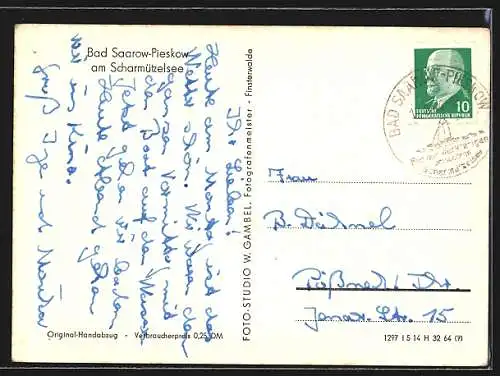 Bad Saarow-Pieskow
am Scharmützelsee
Ihr Lieben!
Heute am Montag ist das
Wetter schön. Wir waren den
ganzen Vormittag mit
dem Boot auf dem Wasser
Jetzt gehen wir baden
Heute Abend gehen
wir ins Kino.
Gruß Inge und
Original-Handabzug - Verbraucherpreis 0,25 DM
FOTO-STUDIO W. GAMBEL, Fotografenmeister - Finsterwalde
10
DEUTSCHE
DEMOKRATISCHE REPUBLIK
BAD SAAROW-PIESKOW
Frau
B. Dähnel
Pößneck / Thr.
Jenaer Str. 15
1297 I 5 14 H 32 64 (7)